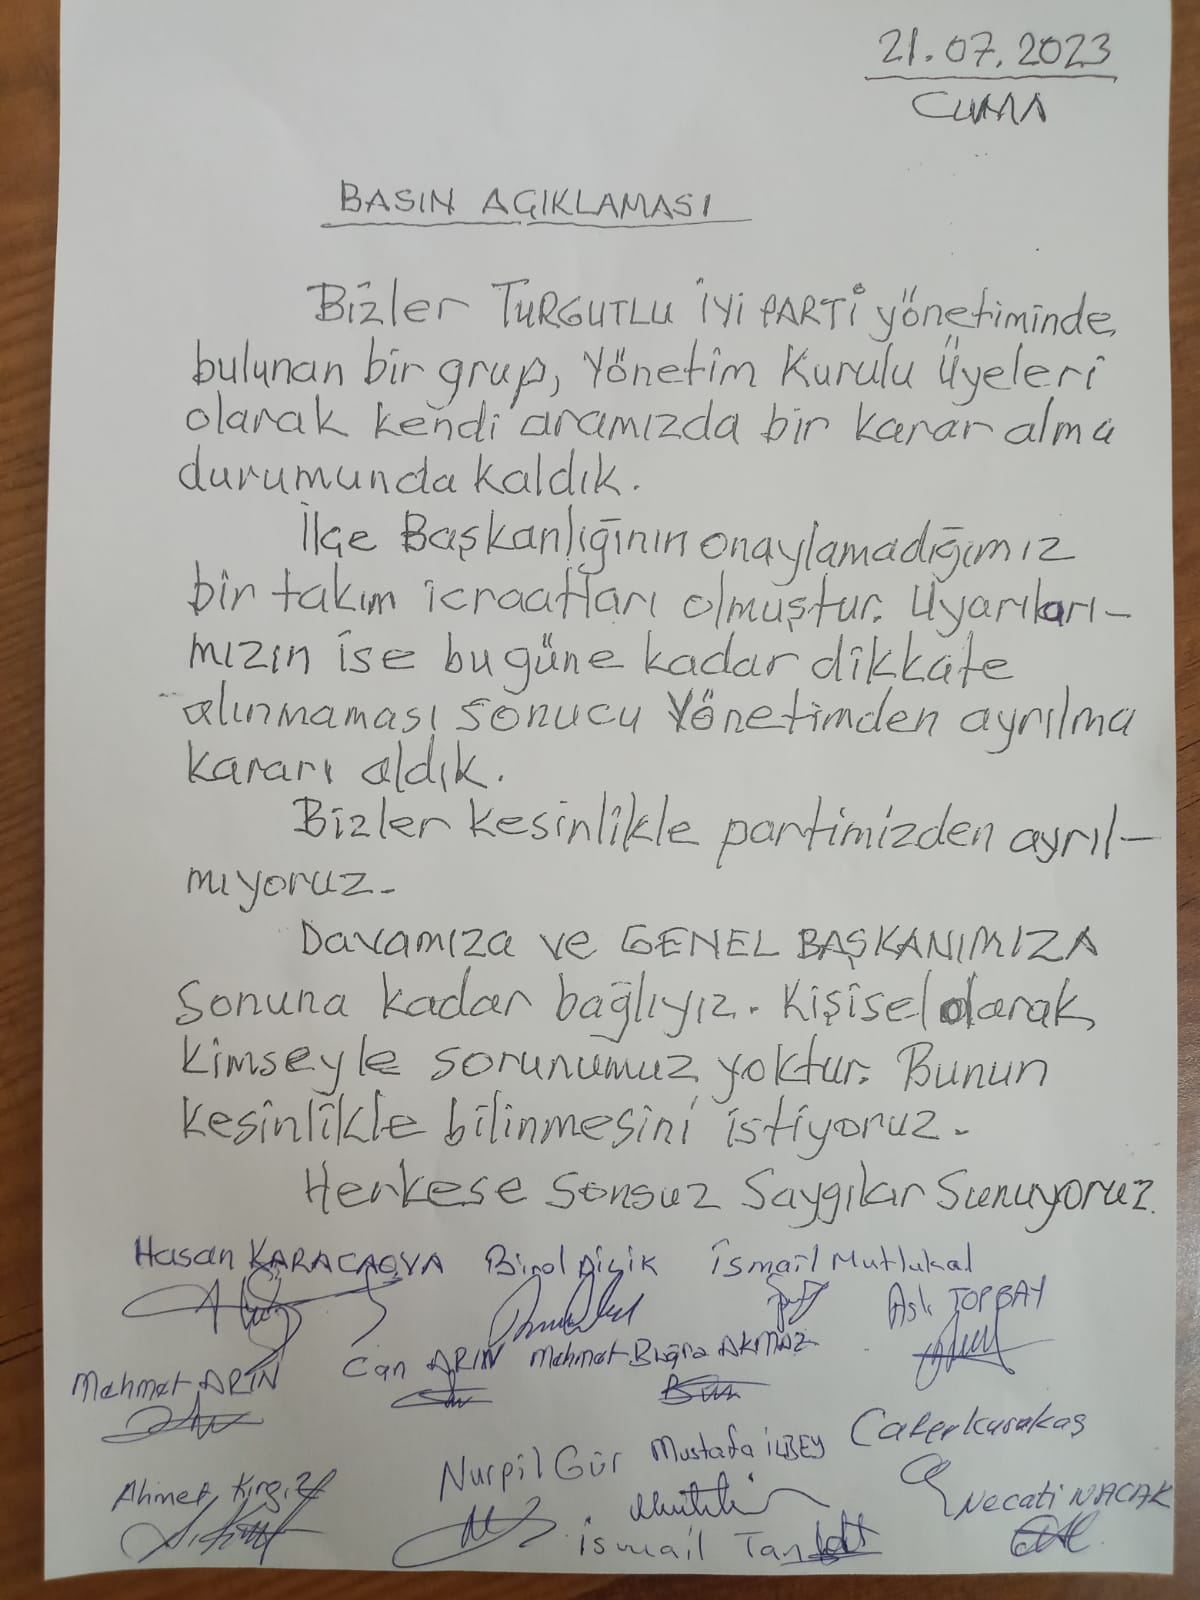 21.07.2023
CUMA
BASIN AÇIKLAMASI
Bizler TURGUTLU İYİ PARTİ yönetiminde
bulunan bir grup, Yönetim Kurulu Üyeleri
olarak kendi aramızda bir karar alma
durumunda kaldık.
İlçe Başkanlığının onaylamadığımız
bir takım icraatları olmuştur. Uyarıları-
mızın ise bugüne kadar dikkate
alınmaması sonucu Yönetimden ayrılma
kararı aldık.
Bizler kesinlikle partimizden ayrıl-
mıyoruz.
Davamıza ve GENEL BAŞKANIMIZA
Sonuna kadar bağlıyız. Kişisel olarak
kimseyle sorunumuz yoktur. Bunun
kesinlikle bilinmesini istiyoruz.
Herkese Sonsuz Saygılar Sunuyoruz.
Hasan KARACAOVA Birol İsmail Mutlukal
Aslı TOPBAY
Mehmet ARIN Can ARIN Mehmet Buğra AKMAZ
Nurpil Gür Mustafa İLBEY Cafer Karakaş
Ahmet Kırgız Necati NACAK
İsmail Tan